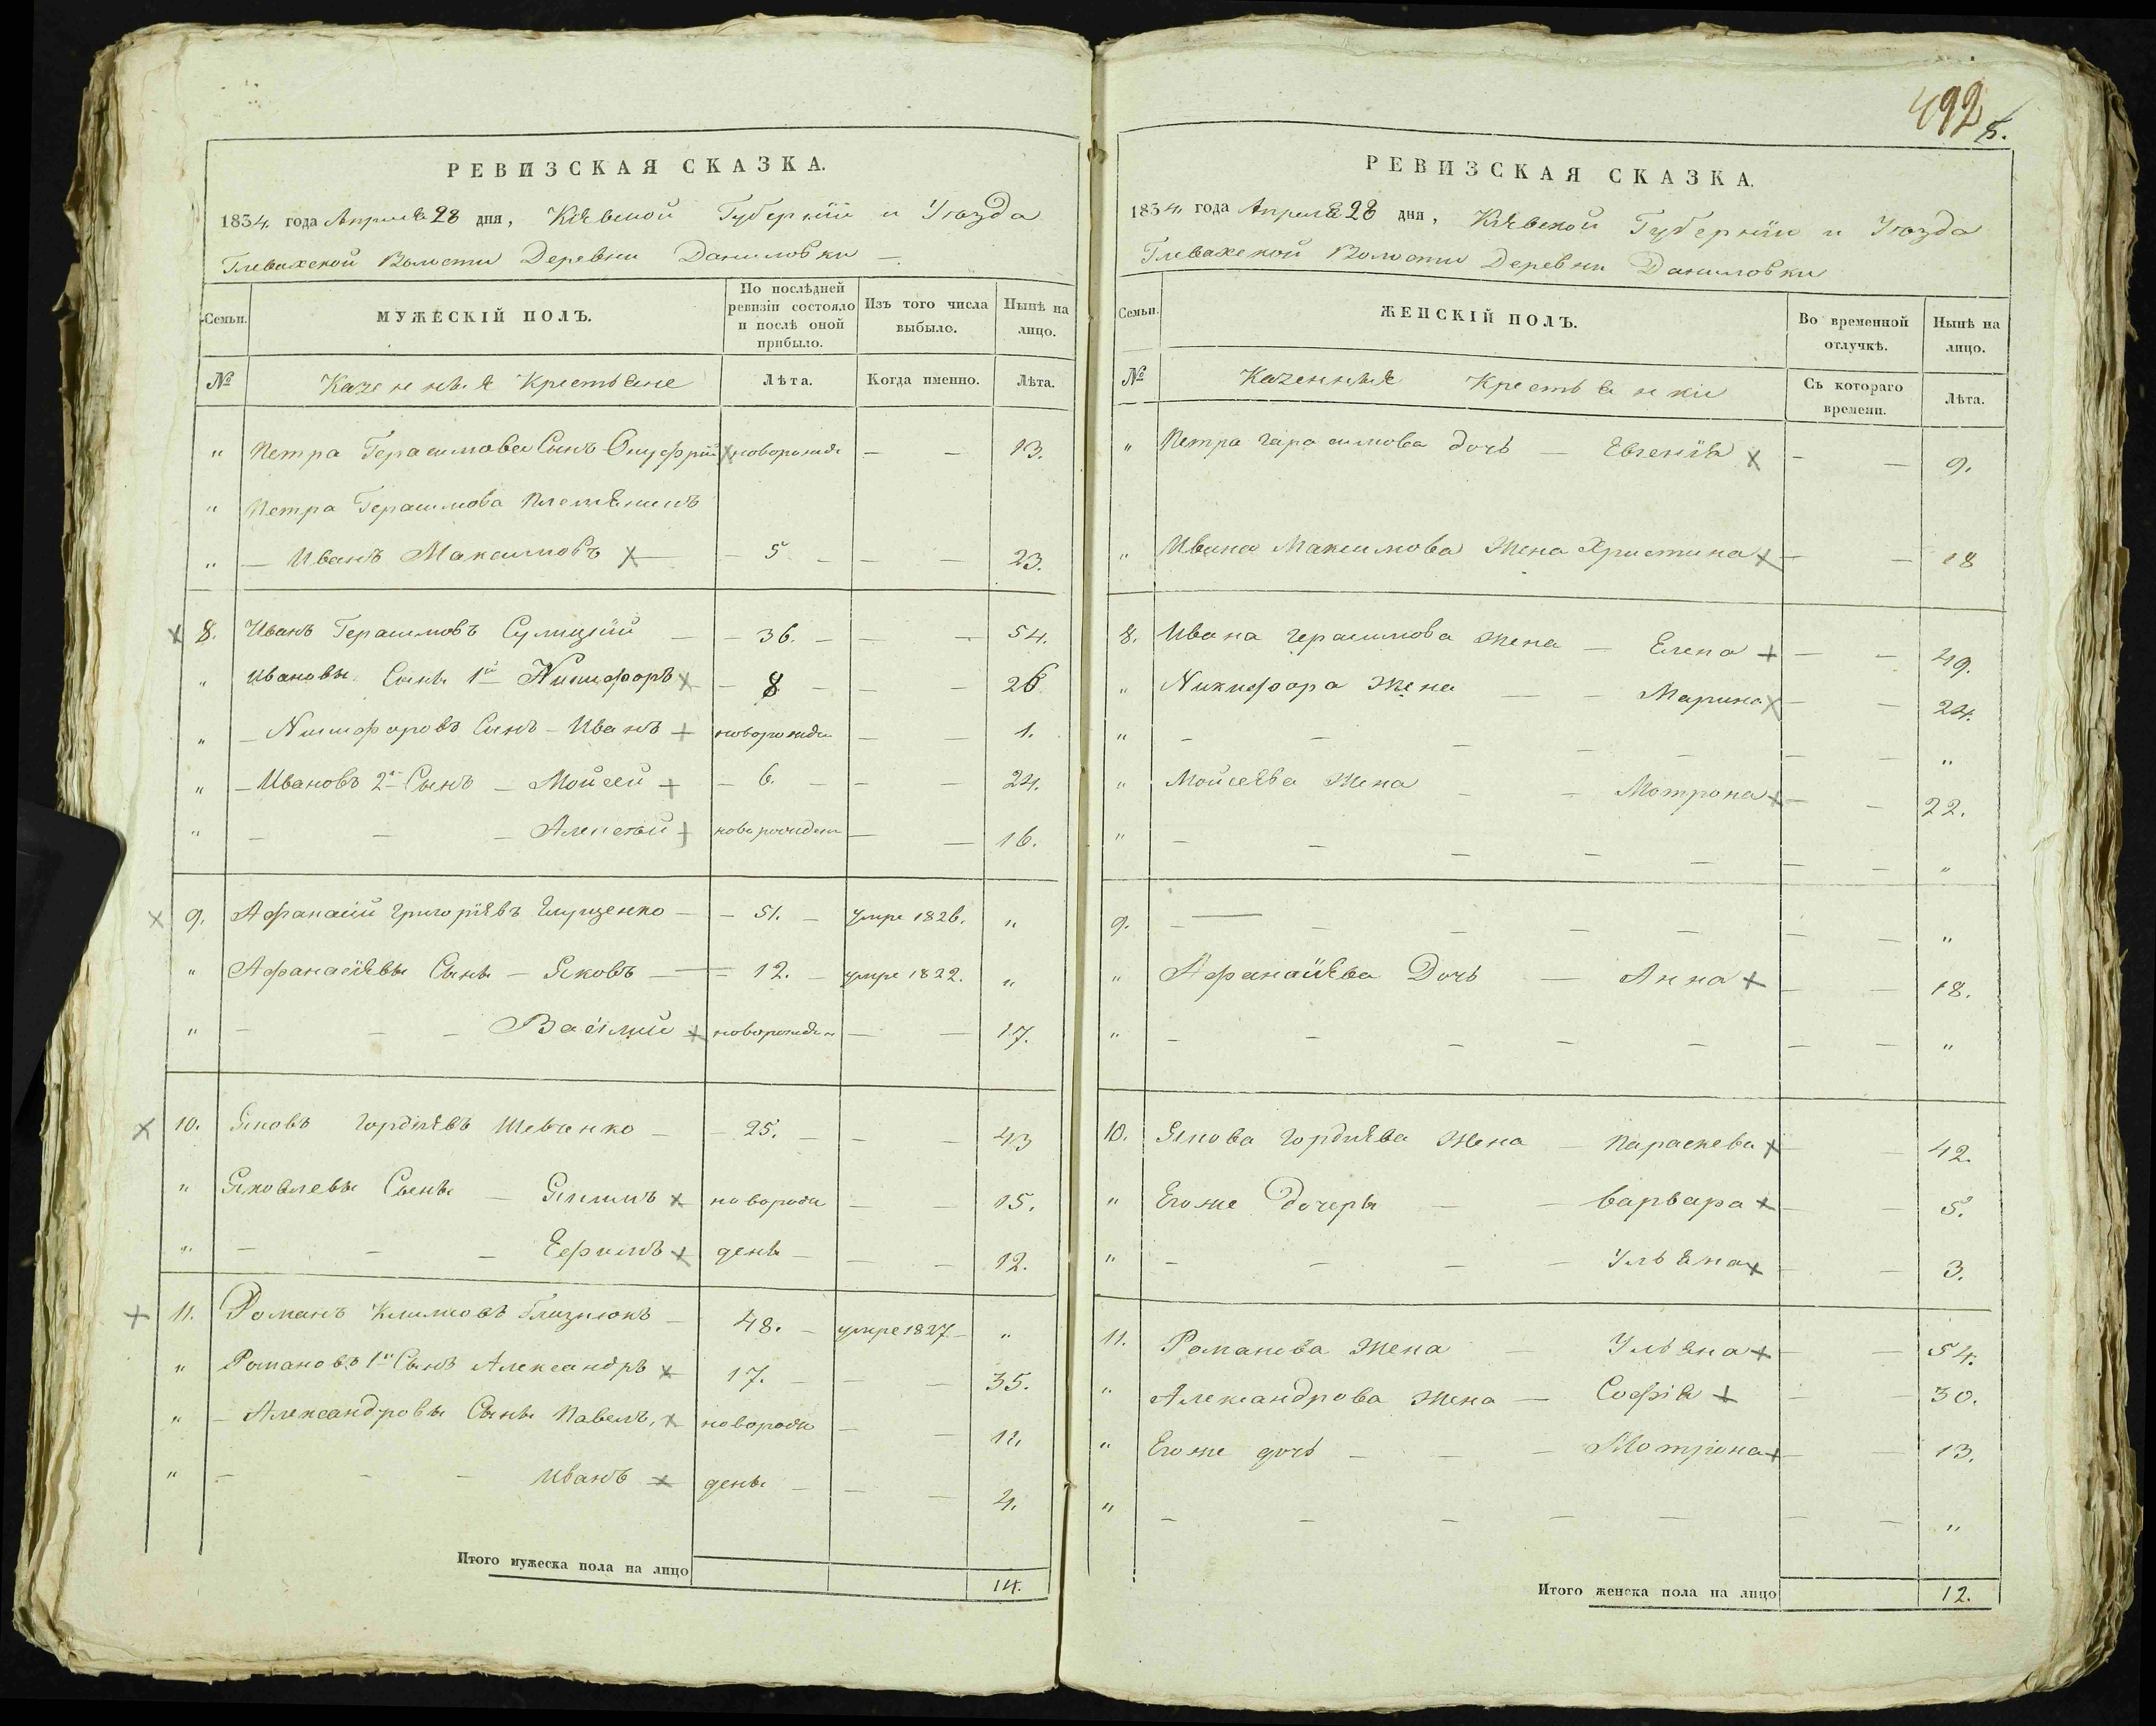 РЕВИЗСКАЯ СКАЗКА.
1834. года Апреля 28 дня, Кіевской Губерніи и Уѣзда
Глевахской Волости Деревни Даниловки —.
Семьи. МУЖЕСКІЙ ПОЛЪ. По послѣдней ревизіи состояло и послѣ оной прибыло. Изъ того числа выбыло. Нынѣ на лицо.
№ Казенныя Крестьяне Лѣта. Когда именно. Лѣта.
" Петра Герасимова Сынъ Онуфрій × новорожде — — 13.
" Петра Герасимова Племянникъ
" — Иванъ Максимовъ × — 5 — — — 23.
× 8. Иванъ Герасимовъ — — 36. — — — 54.
" Ивановы Сыны 1й Никифоръ × — 8 — — — 26
" — Никифоровъ Сынъ — Иванъ + новорожде — — 1.
" — Ивановъ 2й Сынъ — Мойсей + — 6. — — — 24.
" — — — Алексѣй + новорожден — — 16.
× 9. Афанасій Григоріевъ Глущенко — — 51. — умре 1826. "
" Афанасіевы Сыны — Яковъ — — 12. — умре 1822. "
" — — — Василій × новорожде — — 17.
× 10. Яковъ Гордіевъ Шевченко — — 25. — — — 43
" Яковлевы Сыны — Якимъ × новорож — — 15.
" — — — Ефимъ × дены — — — 12.
+ 11. Романъ Климовъ — 48. — умре 1827 — "
" Романовъ 1й Сынъ Александръ × 17. — — — 35.
" — Александровы Сыны Павелъ, × новорож — — 12.
" — — — Иванъ × дены — — — 4.
Итого мужеска пола на лицо 14.
492
5.
РЕВИЗСКАЯ СКАЗКА.
1834. года Апреля 28 дня, Кіевской Губерніи и Уѣзда
Глевахской Волости Деревни Даниловки
Семьи. ЖЕНСКІЙ ПОЛЪ. Во временной отлучкѣ. Нынѣ на лицо.
№ Казенныя Крестьянки Съ котораго времени. Лѣта.
" Петра Гарасимова дочь — Евгенія × — — 9.
" Ивана Максимова Жена Христина × — — 18
8. Ивана Герасимова Жена — Елена + — — 49.
" Никифора Жена — — Марина × — — 24.
" — — — — — — — "
" Мойсеева Жена — — Мотрона × — — 22.
" — — — — — — — "
9. — — — — — — — "
" Афанасіева Дочь — Анна × — — 18.
" — — — — — — — "
10. Якова Гордіева Жена — Параскева × — — 42.
" Егоже Дочеры — — Варвара × — — 5.
" — — — — Ульяна × — — 3.
11. Романова Жена — Ульяна + — — 54.
" Александрова Жена — Софія + — — 30.
" Егоже дочь — — — Мотрона + — — 13.
" — — — — — — — "
Итого женска пола на лицо 12.